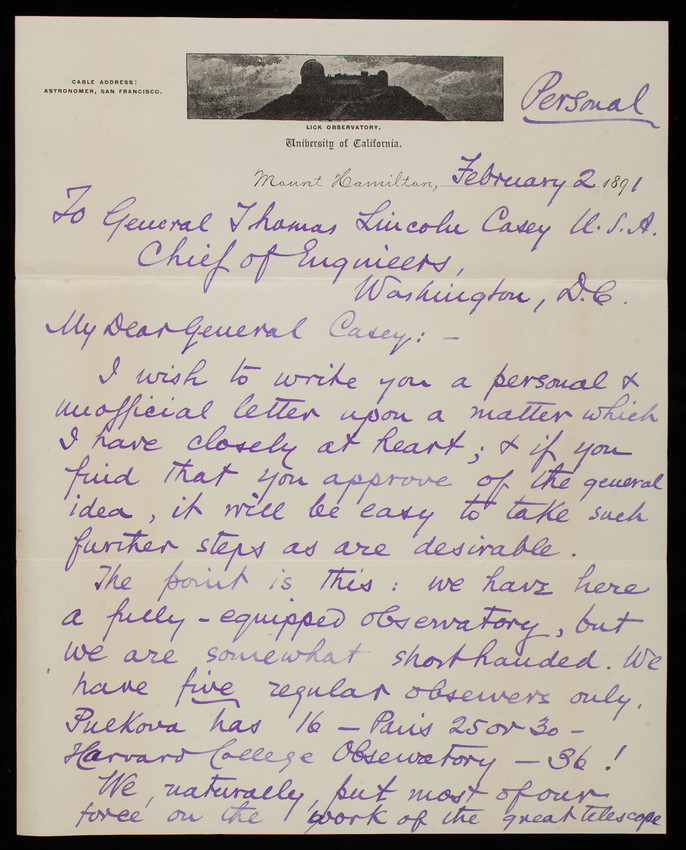 CABLE ADDRESS:
ASTRONOMER, SAN FRANCISCO.
LICK OBSERVATORY.
University of California.
Personal
Mount Hamilton, February 2 1891
To General Thomas Lincoln Casey U.S.A.
Chief of Engineers,
Washington, D.C.
My Dear General Casey: —
I wish to write you a personal &
unofficial letter upon a matter which
I have closely at heart; & if you
find that you approve of the general
idea, it will be easy to take such
further steps as are desirable.
The point is this: we have here
a fully-equipped observatory, but
we are somewhat shorthanded. We
have five regular observers only.
Pulkova has 16 — Paris 25 or 30 —
Harvard College Observatory — 36!
We, naturally, put most of our
force on the work of the great telescope